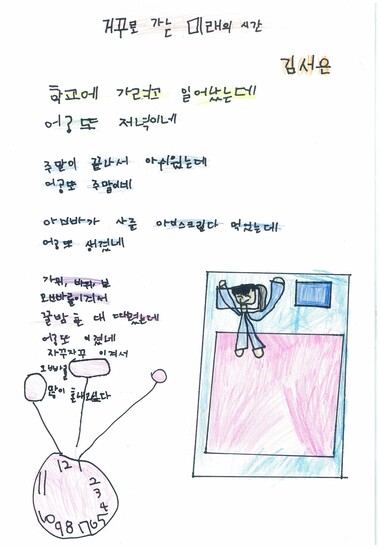 거꾸로 가는 미래의 시간
김서은
학교에 가려고 일어났는데
어? 또 저녁이네
주말이 끝나서 아쉬웠는데
어? 또 주말이네
아빠가 사준 아이스크림 다 먹었는데
어? 또 생겼네
가위, 바위, 보
오빠를 이겨서
꿀밤 한 대 때렸는데
어? 또 이겼네
자꾸자꾸 이겨서
오빠를
많이
12 1
11
2
3
4
10 9 8 7 6 5